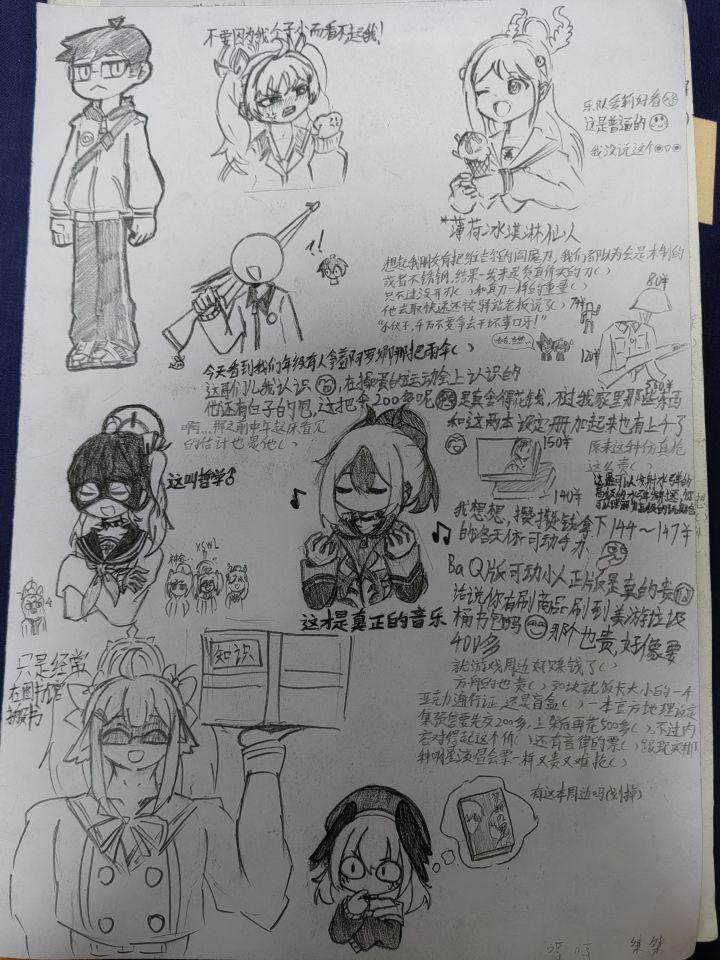 不要因为我个子小而看不起我!
乐队爱莉好看
这是普通的
我没说这个
*薄荷冰淇淋仙人
!!
想起我朋友有把维吉尔的阎魔刀,我们都以为会是木制的
或者不锈钢,结果一发来是货真价实的刀()
只不过没开刃()和真刀一样的重量()
他去取快递还被驿站老板说了()
"小伙子,千万不要拿去干坏事口牙!"
80¥
120¥
今天看到我们年级有人拿着阿罗娜那把雨伞()
这哥们儿我认识,在操蛋的运动会上认识的
他还有白子的包,这把伞200多呢 是真舍得花钱,不过我家里那些东西
和这两本设定册加起来也有上千了
啊...那之前中午起床看见
的估计也是他()
150¥
140¥
原来这种仿真枪
这么贵()
这叫哲学♂
♪
♫
这才是真正的音乐
我想想,攒攒钱拿下144~147¥
的各天依可动手办
Ba Q版可动小人正版是真的贵
话说你有刷商品刷到美游垃圾
桶书包吗 那个也贵,好像要
400多
就游戏周边好赚钱了()
方舟的也贵()30块就饭卡大小的一个
亚克力通行证,还是盲盒()一本立方地理设定
集预售要先交200多,上架后再花500多(),不过内
容对得起这个价()还有音律的票()跟现实那
种明星演唱会票一样又贵又难抢()
神金...
XSWL
只是经常
在图书馆
搬书
知识
有这本周边吗(划掉)
桀桀